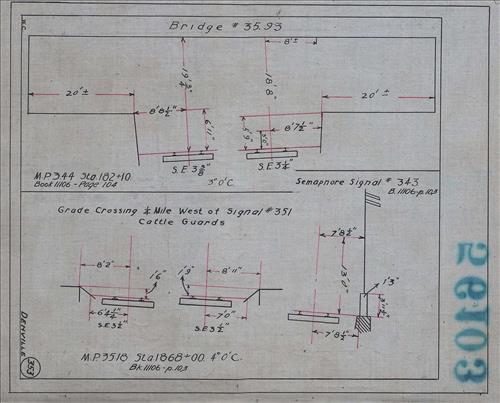 J.W.C.
Bridge # 35.93
8'±
19'3¾"
18'8"
20'±
20'±
8'8½"
8'7½"
6'11"
6'9"
S.E 3⅝"
S.E 3¼"
M.P.344 Sta.182+10.
Book 11106 - Page 104
3°0'C.
Semaphore Signal # 343
B.11106-p.103
Grade Crossing ¼ Mile West of Signal #351
Cattle Guards
7'8½"
8'2"
1'6"
1'9"
8'11"
13'0"
1'3"
6'4½"
S.E 3½"
7'0"
S.E 3½"
7'8½"
M.P.351.8 Sta 1868+00. 4°0'C.
Bk.11106-p.103
DENVILLE
353
26103